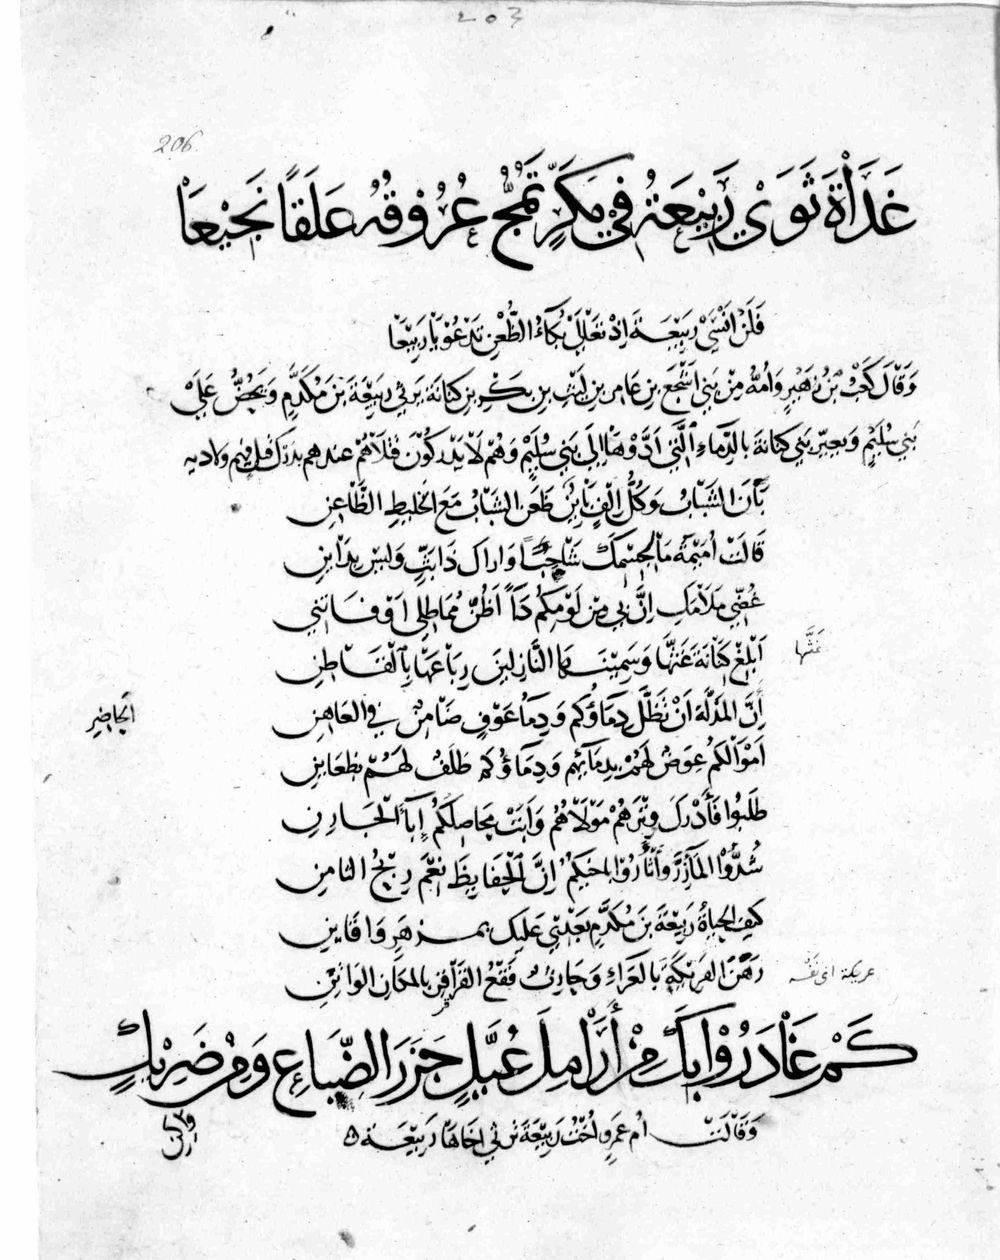 203
206
غَدَاةَ ثَوَيْ رَبِيْعَةُ فِيْ مَكَرٍّ تَمُجُّ عُرُوْقُهُ عَلَقًا نَجِيْعَا
فَلَنْ اَنْسَيْ رَبِيْعَةَ اِذْ تَعَالَيْ بُكَاءُ الظُّعْنِ تَدْعُوْ يَا رَبِيْعَا
وَقَالَ كَعْبُ بْنُ زُهَيْرٍ وَاُمُّهُ مِنْ بَنِيْ اَشْجَعَ بنِ عَامِرِ بنِ لَيْثِ بنِ بَكْرِ بنِ كِنَانَةَ يَرْثِيْ رَبِيْعَةَ بْنَ مُكَدَّمٍ وَيَحُضُّ عَلَيْ
بَنِيْ سُلَيْمٍ وَيُعِيّرُ بَنِيْ كِنَانَةَ بِالدِّمَاءِ الَّتِيْ اَدَّوْهَا اِلَيْ بَنِيْ سُلَيْمٍ وَهُمْ لَا يُدْرِكُوْنَ قَتْلَاهُمْ عندهم بدرك قتل فيهم ولا ديه
بَانَ الشَّبَابُ وَكُلُّ اِلْفٍ بَايِنُ ظَعَنَ الشَّبَابُ مَعَ الخَلِيطِ الظَّاعِنِ
قَالَتْ اُمَيْمَةُ مَا لِجِسْمِكَ شَاحِبًا وَاَرَاكَ ذَا بَثٍّ وَلَيْسَ بِدَايِنِ
غُضِّيْ مَلَامَكِ اِنَّ بِيْ مِنْ لَوْمِكُم دَاءً اَظُنُّ مُمَاطِلِيْ اَوْ فَاتِنِيْ
اَبْلِغْ كِنَانَةَ غَثَّهَا وَسَمِيْنَهَا النَّازِلِينَ رِبَاعَهَا بِالْقَاطِنِ
غَثَّها
اِنَّ المَذَلَّةَ اَنْ تُطَلَّ دِمَاؤُكُم وَدِمَاءُ عَوْفٍ ضَامِنٌ فِي العَاهِنِ
اَيْ الحاضِرِ
اَمْوَالُكُمْ عِوَضٌ لَهُمْ بِدِمَائِهِم وَدِمَاؤُكُم طَلَفٌ لَهُمْ بِظَعَاينِ
طَلَبُوا فَأَدْرَكَ وِتْرَهُمْ مَوْلَاهُمُ وَاَبَتْ مَحَاصِلُكُمْ اِبَاءَ الْحَارِنِ
شُدُّوْا المَآزِرَ وَاثْأَرُوْا بِاَخِيْكُمُ اِنَّ الْحَفَايِظَ نِعْمَ رِبْحُ الثَّامِنِ
كَيْفَ الحَيَاةُ رَبِيْعَةَ بْنَ مُكَدَّمٍ يُغْدَيْ عَلَيْكَ بِمِزْهَرٍ وَاقَايِنِ
وَهُوَ التَّرِيْكَةُ بِالعَرَاءِ وَحَارِثٌ فَقْعُ القَرَاقِرِ بِالمَكَانِ الوَاتِنِ
كَمْ غَادَرُوْا لَكَ مِنْ أَرَامِلَ عُيَّلٍ جَزَرَ الضِّبَاعِ وَمِنْ ضَرِيْكٍ
وَقَالَتْ اُم عَمرٍو اُخْتُ رَبِيْعَةَ تَرْثِيْ اَخَاهَا رَبِيْعَةَ